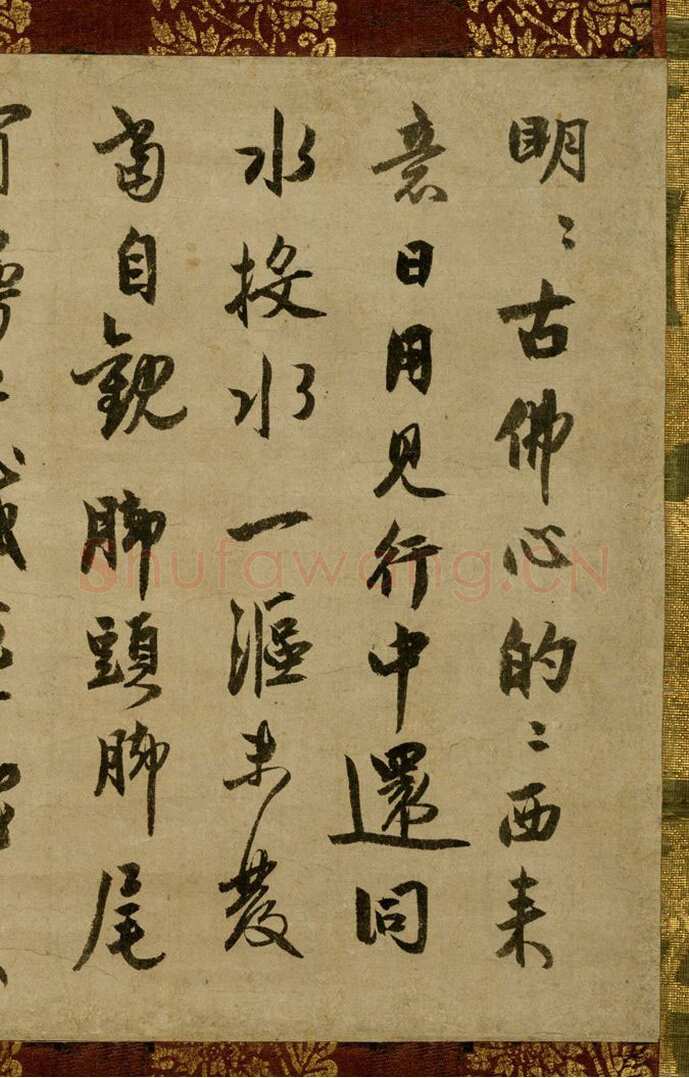 明〻古佛心的〻西来
意日用見行中還同
水投水一漚未發
當自觀脚頭脚尾
Shufawang.CN